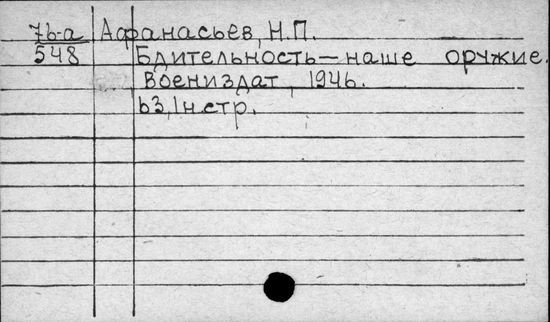 76-а Афанасьев, Н.П.
548 Бдительность — наше оружие.
Воениздат, 1946.
63, 1н. стр.